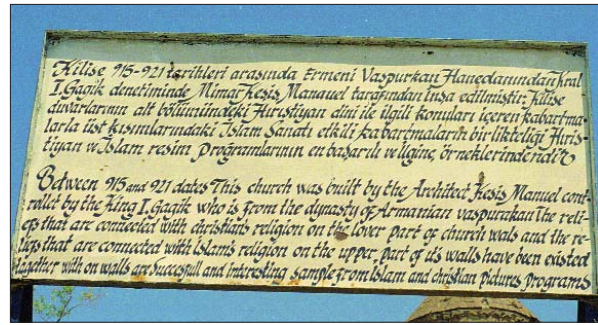 Kilise 915-921 tarihleri arasında Ermeni Vaspurkan Hanedanından Kral
I.Gagik denetiminde Mimar Kesis Manauel tarafından inşa edilmiştir. Kilise
duvarlarının alt bölümündeki Hıristiyan dini ile ilgili konuları içeren kabartma-
larla üst kısımlarındaki İslam Sanatı etkili kabartmaların bir likteliği Hıris-
tiyan ve İslam resim programlarının en başarılı ve ilginç örneklerindendir
Between 915 and 921 dates This church was built by the Architect Kesis Manuel cont-
rollet by the King I.Gagik who is from the dynasty of Armanian vaspurakan The reli-
efs that are connected with christians religion on the lower part of church wals and the re-
liefs that are connected with Islam's religion on the upper part of it's walls have been existed
together with on walls are Succesfull and interesting sample from Islam and christian pictures programs